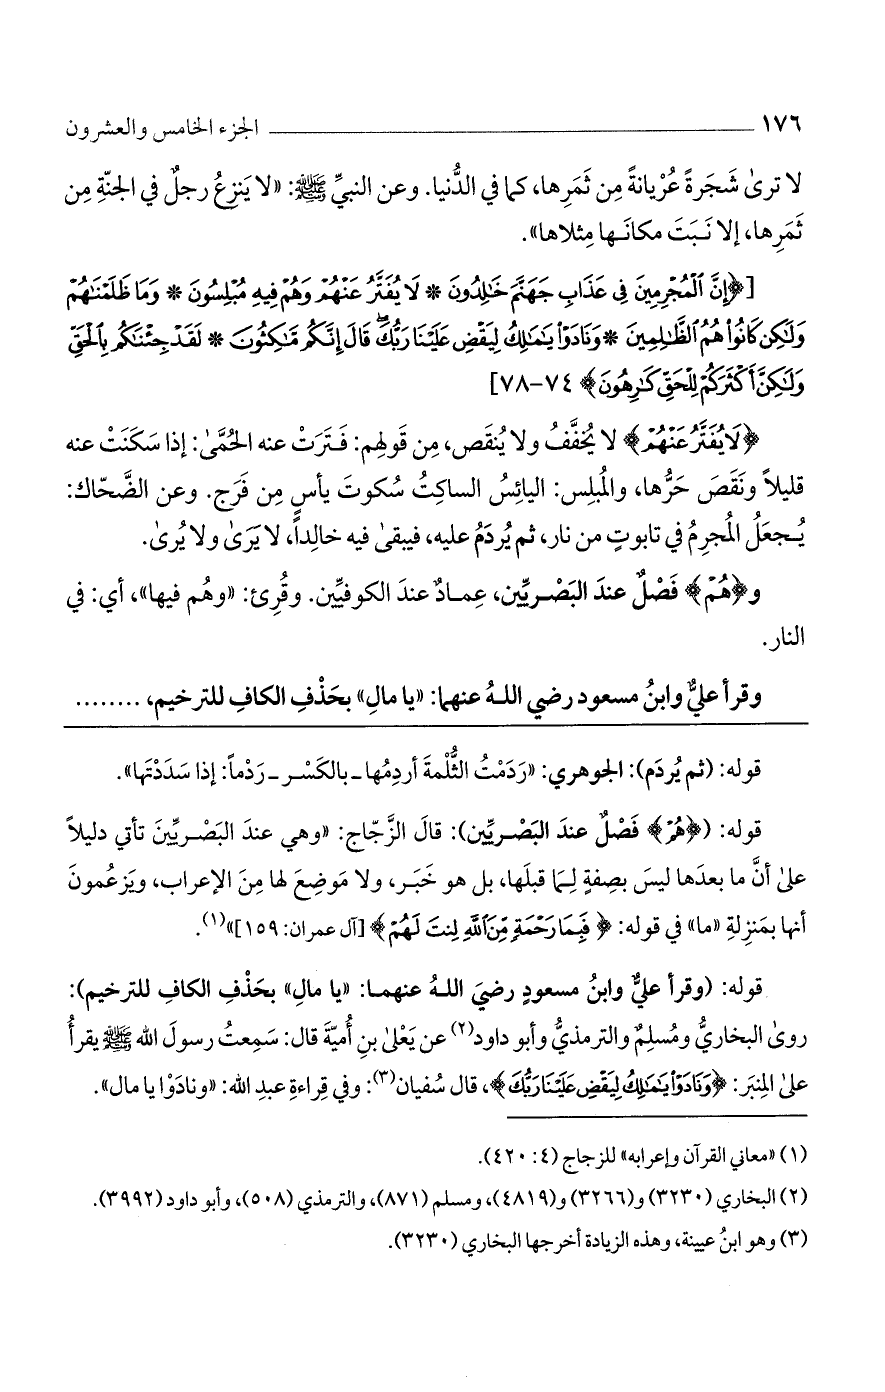 ١٧٦ ــــــــــــــــــــــــــــــــــــــــ الجزء الخامس والعشرون
لا ترىٰ شَجَرةً عُرْيانةً مِن ثَمَرِها، كما في الدُّنيا. وعن النبيِّ ﷺ: «لا يَنزِعُ رجلٌ في الجنّةِ مِن
ثَمَرِها، إلا نَبَتَ مكانَها مِثلاها».
[﴿إِنَّ ٱلْمُجْرِمِينَ فِى عَذَابِ جَهَنَّمَ خَٰلِدُونَ * لَا يُفَتَّرُ عَنْهُمْ وَهُمْ فِيهِ مُبْلِسُونَ * وَمَا ظَلَمْنَٰهُمْ
وَلَٰكِن كَانُوا۟ هُمُ ٱلظَّٰلِمِينَ * وَنَادَوْا۟ يَٰمَٰلِكُ لِيَقْضِ عَلَيْنَا رَبُّكَ ۖ قَالَ إِنَّكُم مَّٰكِثُونَ * لَقَدْ جِئْنَٰكُم بِٱلْحَقِّ
وَلَٰكِنَّ أَكْثَرَكُمْ لِلْحَقِّ كَٰرِهُونَ﴾ ٧٤-٧٨]
﴿لَا يُفَتَّرُ عَنْهُمْ﴾ لا يُخفَّفُ ولا يُنقَص، مِن قولِهم: فَتَرَتْ عنه الحُمَّىٰ: إذا سَكَنَتْ عنه
قليلاً ونَقَصَ حَرُّها، والمُبلِس: اليائِسُ الساكِتُ سُكوتَ يأسٍ مِن فَرَج. وعن الضَّحّاك:
يُجعَلُ المُجرِمُ في تابوتٍ من نار، ثم يُردَمُ عليه، فيبقىٰ فيه خالِداً، لا يَرَىٰ ولا يُرىٰ.
و﴿هُمْ﴾ فَصْلٌ عندَ البَصْريِّين، عِمادٌ عندَ الكوفيِّين. وقُرِئ: «وهُم فيها»، أي: في
النار.
وقرأ عليٌّ وابنُ مسعود رضي اللهُ عنهما: «يا مالِ» بحَذْفِ الكافِ للترخيم، ........
قوله: (ثم يُردَم): الجوهري: «رَدَمْتُ الثُّلمةَ أردِمُها ـ بالكَسْر ـ رَدْماً: إذا سَدَدْتَها».
قوله: (﴿هُمْ﴾ فَصْلٌ عندَ البَصْريِّين): قالَ الزَّجّاج: «وهي عندَ البَصْريِّينَ تأتي دليلاً
علىٰ أنَّ ما بعدَها ليسَ بصِفةٍ لِمَا قبلَها، بل هو خَبَر، ولا مَوضِعَ لها مِنَ الإعراب، ويَزعُمونَ
أنها بمَنزِلةِ «ما» في قوله: ﴿فَبِمَا رَحْمَةٍ مِّنَ ٱللَّهِ لِنتَ لَهُمْ﴾ [آل عمران: ١٥٩]»(١).
قوله: (وقرأ عليٌّ وابنُ مسعودٍ رضيَ اللهُ عنهما: «يا مالِ» بحَذْفِ الكافِ للترخيم):
روىٰ البخاريُّ ومُسلِمٌ والترمذيُّ وأبو داود(٢) عن يَعْلىٰ بنِ أُميّةَ قال: سَمِعتُ رسولَ الله ﷺ يقرأُ
علىٰ المِنبَر: ﴿وَنَادَوْا۟ يَٰمَٰلِكُ لِيَقْضِ عَلَيْنَا رَبُّكَ﴾، قال سُفيان(٣): وفي قِراءةِ عبدِ الله: «ونادَوْا يا مال».
(١) «معاني القرآن وإعرابه» للزجاج (٤: ٤٢٠).
(٢) البخاري (٣٢٣٠) و(٣٢٦٦) و(٤٨١٩)، ومسلم (٨٧١)، والترمذي (٥٠٨)، وأبو داود (٣٩٩٢).
(٣) وهو ابنُ عيينة، وهذه الزيادة أخرجها البخاري (٣٢٣٠).